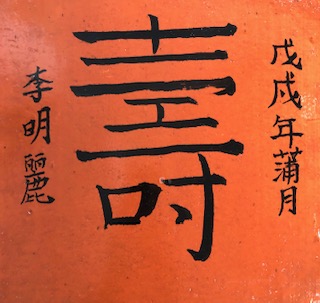 戊戌年蒲月
壽
李明麗